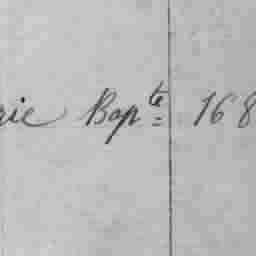 rie Bapte 168